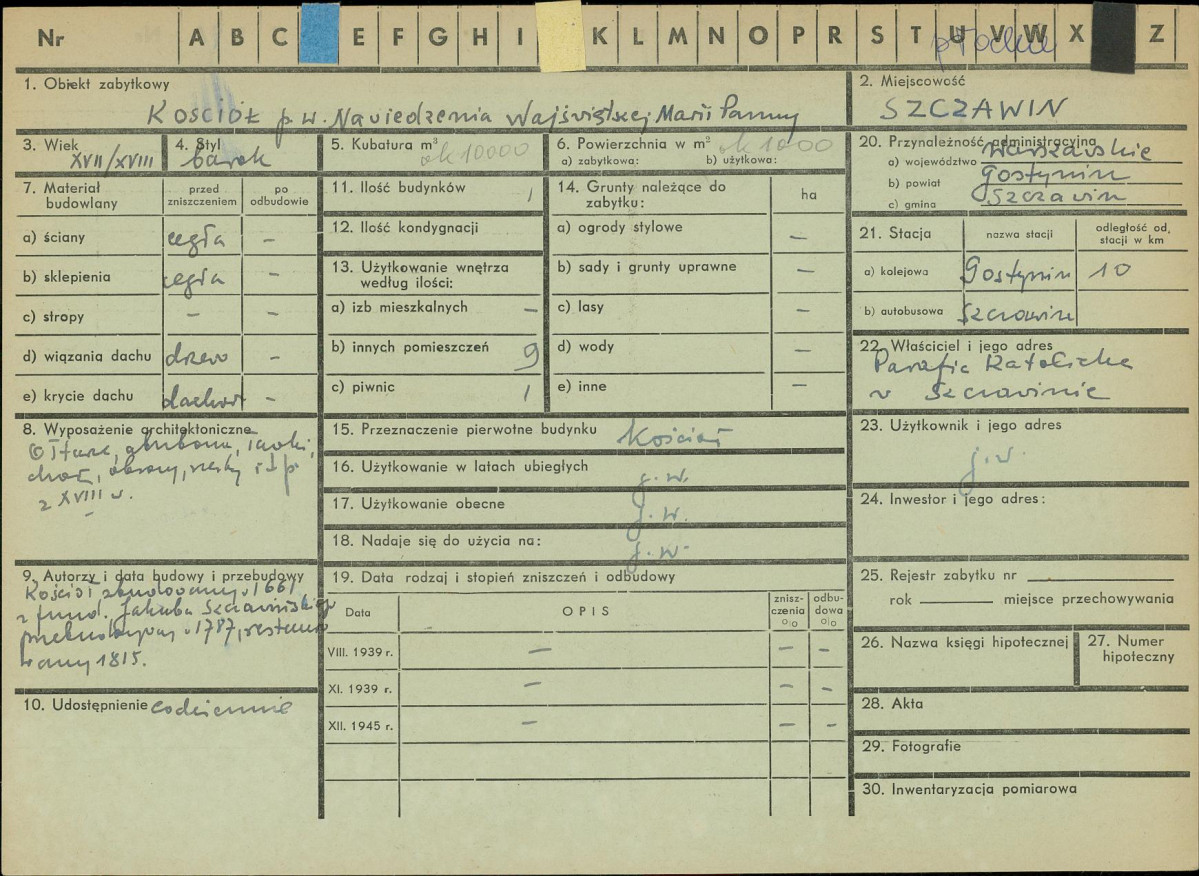 Nr A B C E F G H I K L M N O P R S T U V W X Z
płockie
1. Obiekt zabytkowy
KOŚCIÓŁ p.w. Nawiedzenia Najświętszej Marii Panny
2. Miejscowość
SZCZAWIN
3. Wiek
XVII/XVIII
4. Styl
barok
5. Kubatura m³
ok 10000
6. Powierzchnia w m²
ok 1000
a) zabytkowa: b) użytkowa:
20. Przynależność administracyjna
a) województwo warszawskie
b) powiat Gostynin
c) gmina Szczawin
7. Materiał budowlany
przed zniszczeniem
po odbudowie
a) ściany cegła –
b) sklepienia cegła –
c) stropy – –
d) wiązania dachu drzewo –
e) krycie dachu –
11. Ilość budynków 1
12. Ilość kondygnacji
13. Użytkowanie wnętrza
według ilości:
a) izb mieszkalnych –
b) innych pomieszczeń 9
c) piwnic 1
14. Grunty należące do
zabytku:
ha
a) ogrody stylowe –
b) sady i grunty uprawne –
c) lasy –
d) wody –
e) inne –
21. Stacja
nazwa stacji
odległość od
stacji w km
a) kolejowa Gostynin 10
b) autobusowa Szczawin
22. Właściciel i jego adres
Parafia Katolicka
w Szczawinie
8. Wyposażenie architektoniczne
Ołtarz, ambona, ławki,
chór, obrazy, rzeźby i t p
z XVIII w.
15. Przeznaczenie pierwotne budynku Kościół
16. Użytkowanie w latach ubiegłych j.w.
17. Użytkowanie obecne j.w.
18. Nadaje się do użycia na: j.w.
23. Użytkownik i jego adres
j.w.
24. Inwestor i jego adres:
9. Autorzy i data budowy i przebudowy
Kościół zbudowany w 1661
z fund. Jakuba Szczawińskiego
w 1787, restauro
wany 1815.
19. Data rodzaj i stopień zniszczeń i odbudowy
Data OPIS
znisz-
czenia
o/o
odbu-
dowa
o/o
VIII. 1939 r. – – –
XI. 1939 r. – – –
XII. 1945 r. – – –
25. Rejestr zabytku nr
rok miejsce przechowywania
26. Nazwa księgi hipotecznej
27. Numer
hipoteczny
10. Udostępnienie codziennie
28. Akta
29. Fotografie
30. Inwentaryzacja pomiarowa